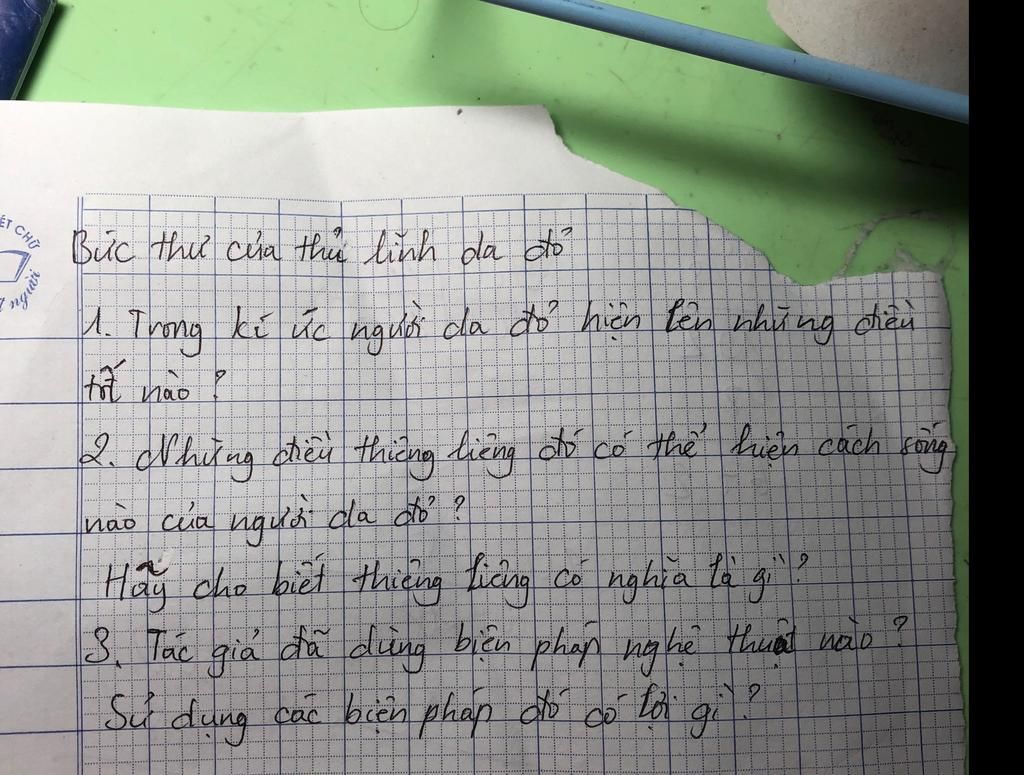 ẾT CHỮ
người
Bức thư của thủ lĩnh da đỏ
1. Trong kí ức người da đỏ hiện lên những điều
tốt nào?
2. Những điều thiêng liêng đó có thể hiện cách sống
nào của người da đỏ?
Hãy cho biết thiêng liêng có nghĩa là gì?
3. Tác giả đã dùng biện pháp nghệ thuật nào?
Sử dụng các biện pháp đó có lợi gì?